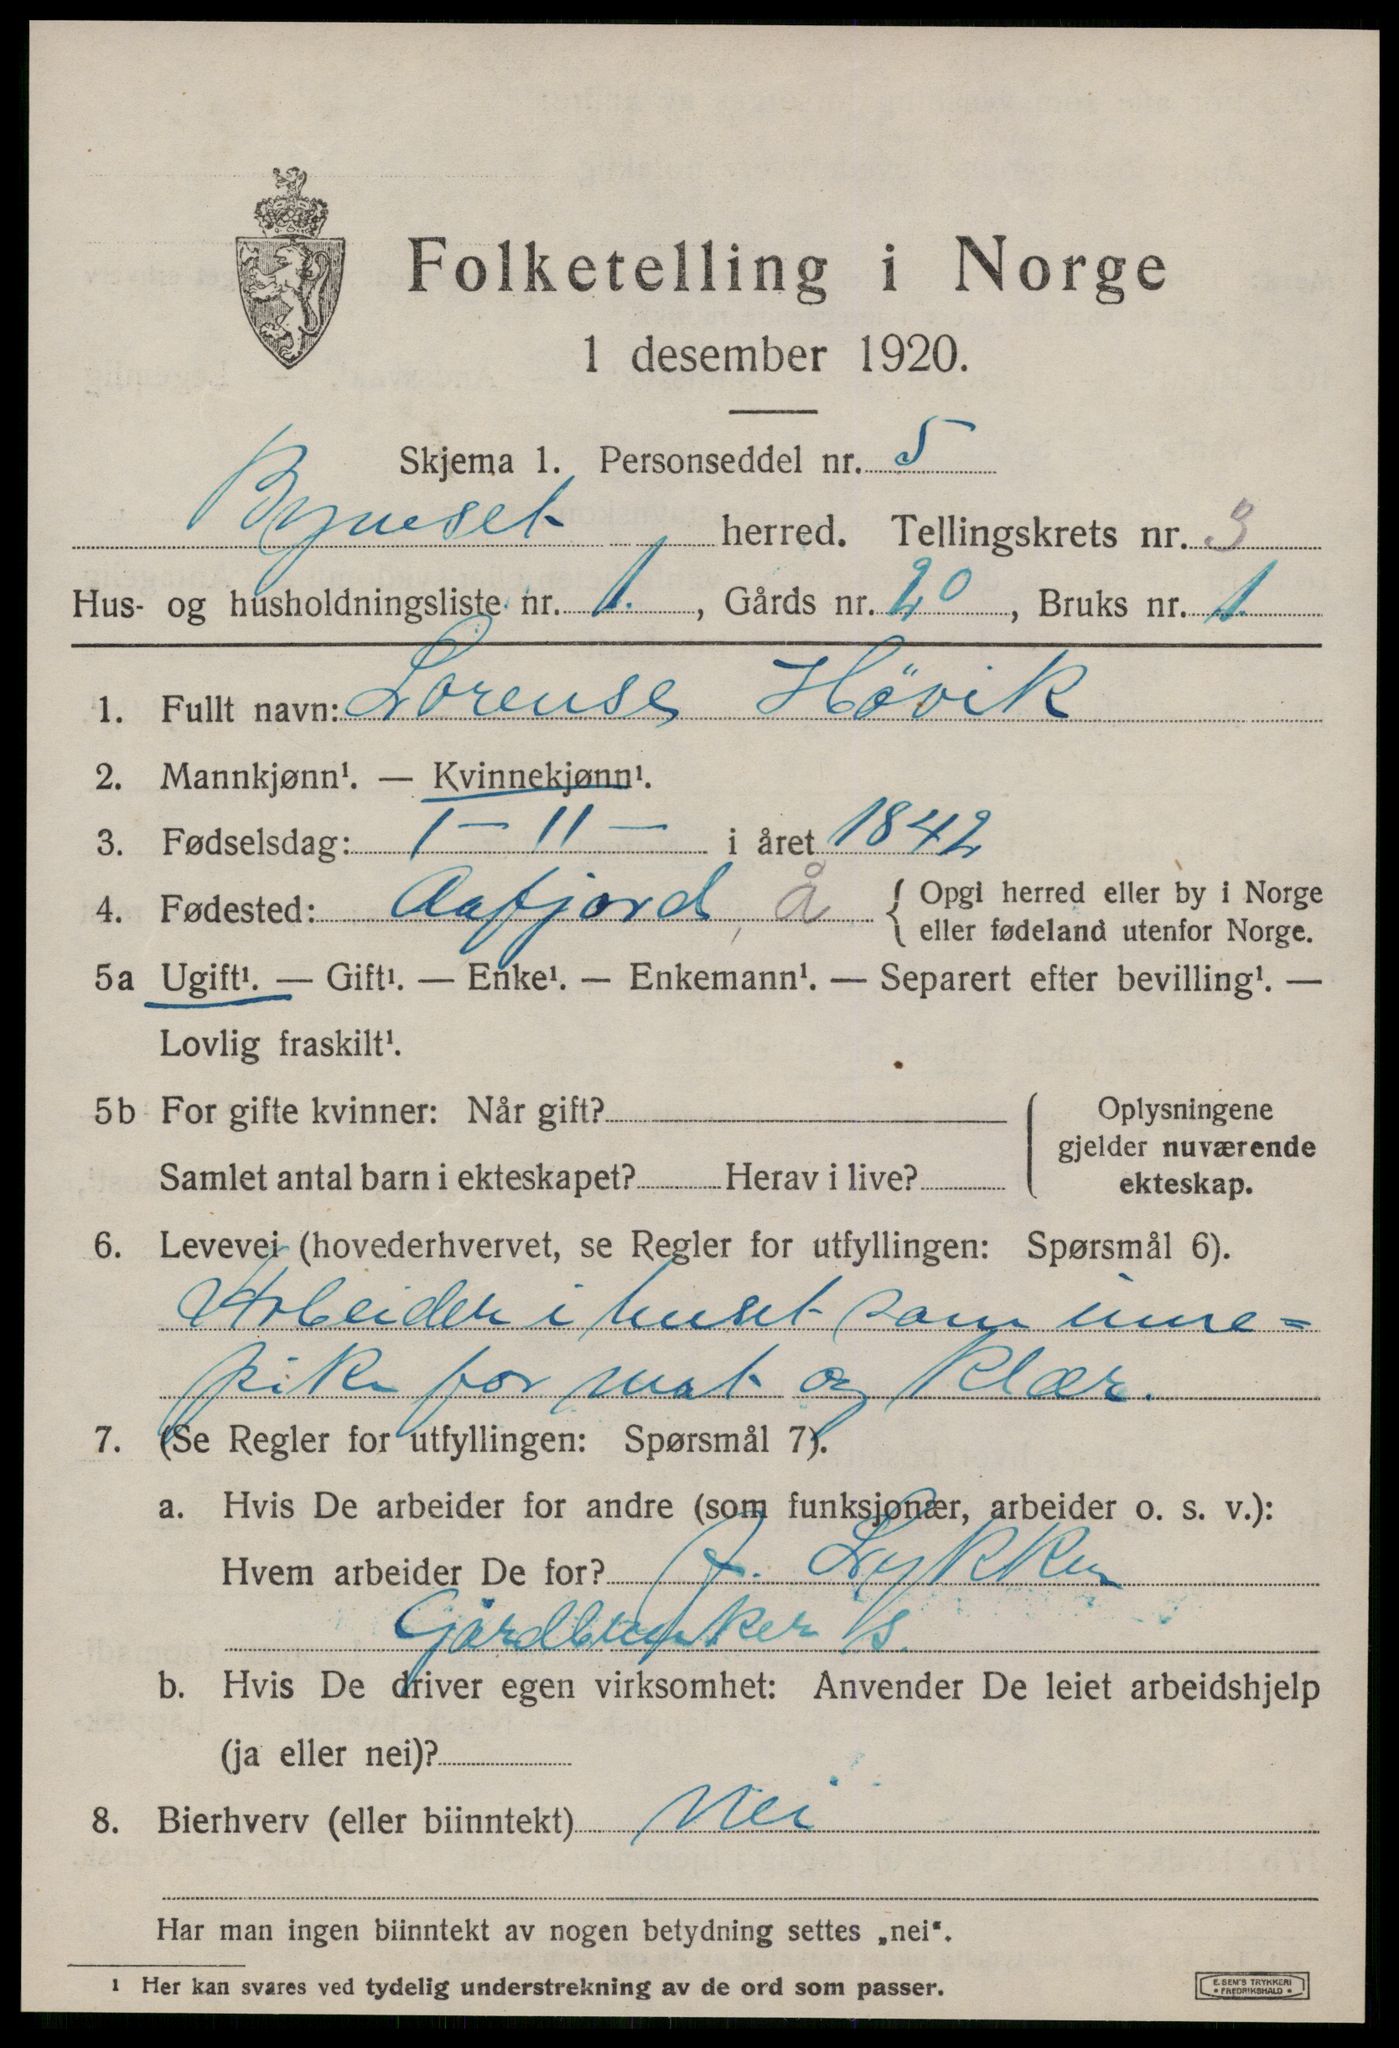 Folketelling i Norge
1 desember 1920.
Skjema 1. Personseddel nr. 5
Byneset herred. Tellingskrets nr. 3
Hus- og husholdningsliste nr. 1., Gårds nr. 20, Bruks nr. 1.
1. Fullt navn: Lorense Hövik
2. Mannkjønn¹. — Kvinnekjønn¹.
3. Fødselsdag: 1 — 11 — i året 1842
4. Fødested: Aafjord, Å { Opgi herred eller by i Norge
eller fødeland utenfor Norge.
5a Ugift¹. — Gift¹. — Enke¹. — Enkemann¹. — Separert efter bevilling¹. —
Lovlig fraskilt¹.
5b For gifte kvinner: Når gift?
Samlet antal barn i ekteskapet? Herav i live?
Oplysningene
gjelder nuværende
ekteskap.
6. Levevei (hovederhvervet, se Regler for utfyllingen: Spørsmål 6).
Arbeider i huset som inne=
pike for mat og klær.
7. (Se Regler for utfyllingen: Spørsmål 7).
a. Hvis De arbeider for andre (som funksjonær, arbeider o. s. v.):
Hvem arbeider De for? J. Lykken
Gårdbruker s.
b. Hvis De driver egen virksomhet: Anvender De leiet arbeidshjelp
(ja eller nei)?
8. Bierhverv (eller biinntekt) Nei
Har man ingen biinntekt av nogen betydning settes „nei“.
1 Her kan svares ved tydelig understrekning av de ord som passer.
E. SEM'S TRYKKERI
• FREDRIKSHALD •